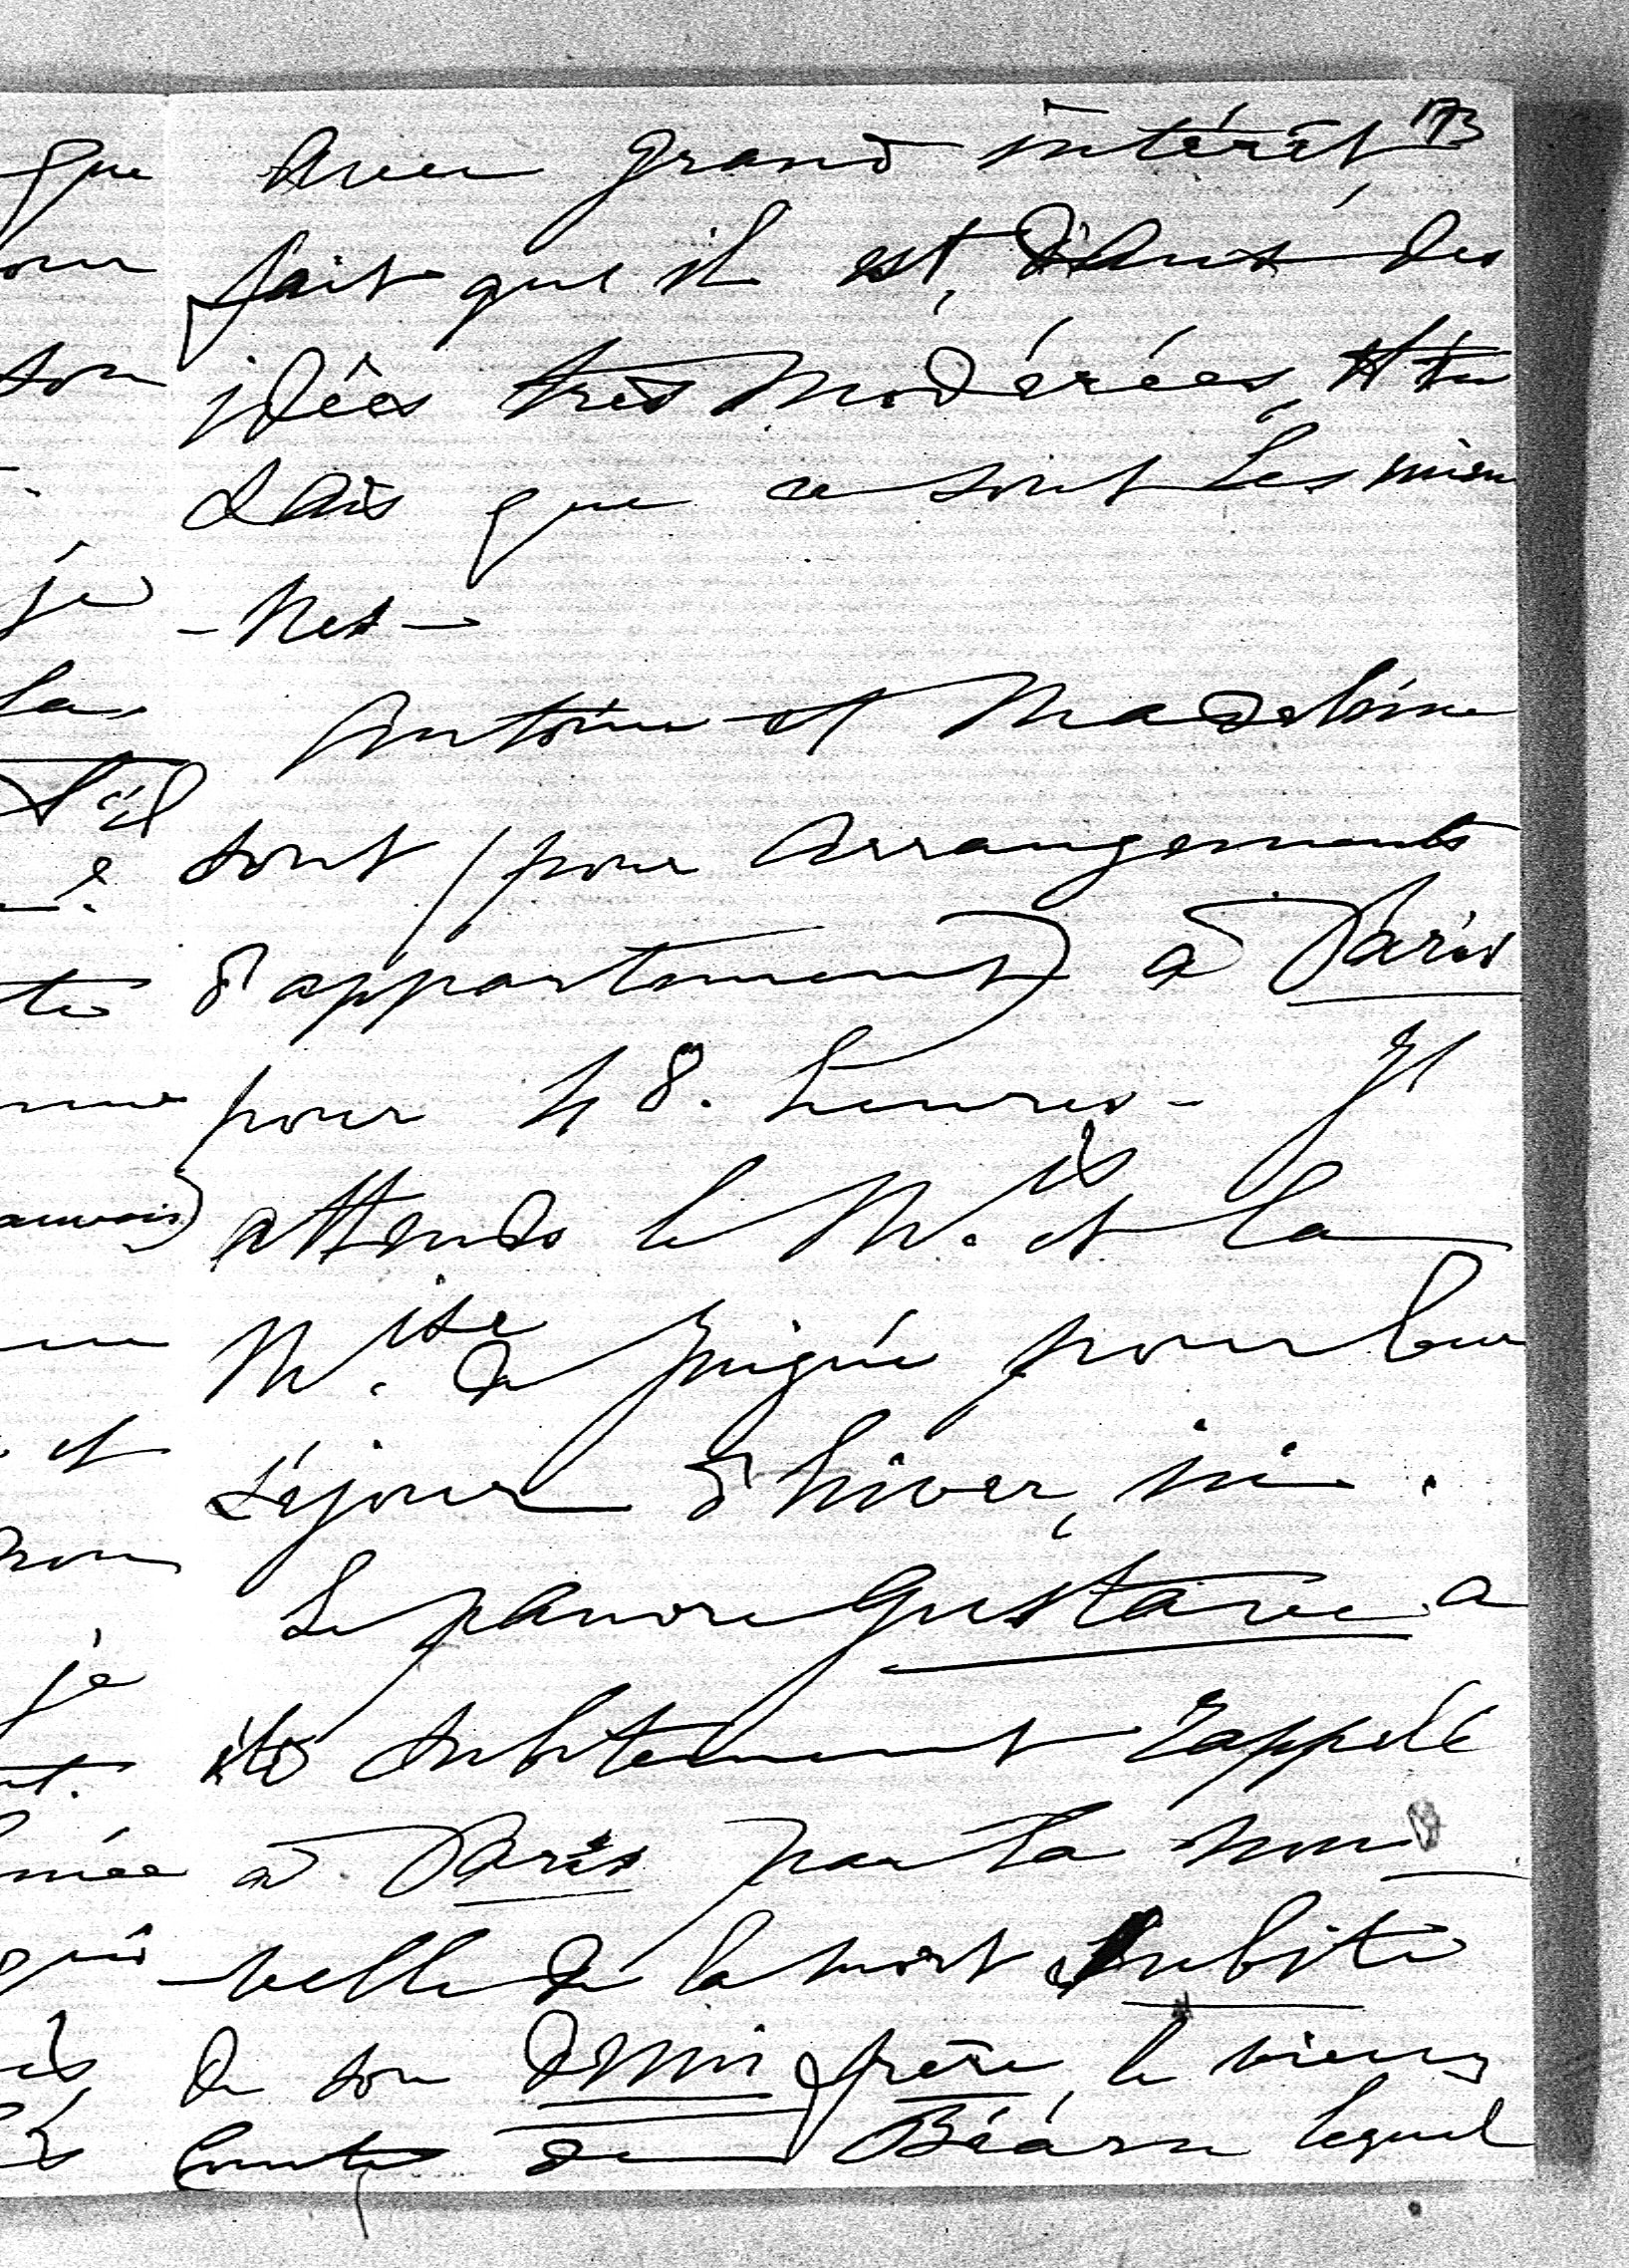 173
avec grand intérêt,
fait que il est, dans des
idées très modérées, et tu
sais que ce sont les mien
-nes-
Antoine et Madeleine
sont (pour arrangements
d'appartement) à Paris
pour 48. heures - Il
attends le M.is et la
M.ise de Juigné pour leur
séjour d'hiver, ici.
Le pauvre Gustave a
été subitement rappelé
à Paris par la nou
-velle de la mort subite
de son demi frère, le vieux
Comte de Béarn lequel